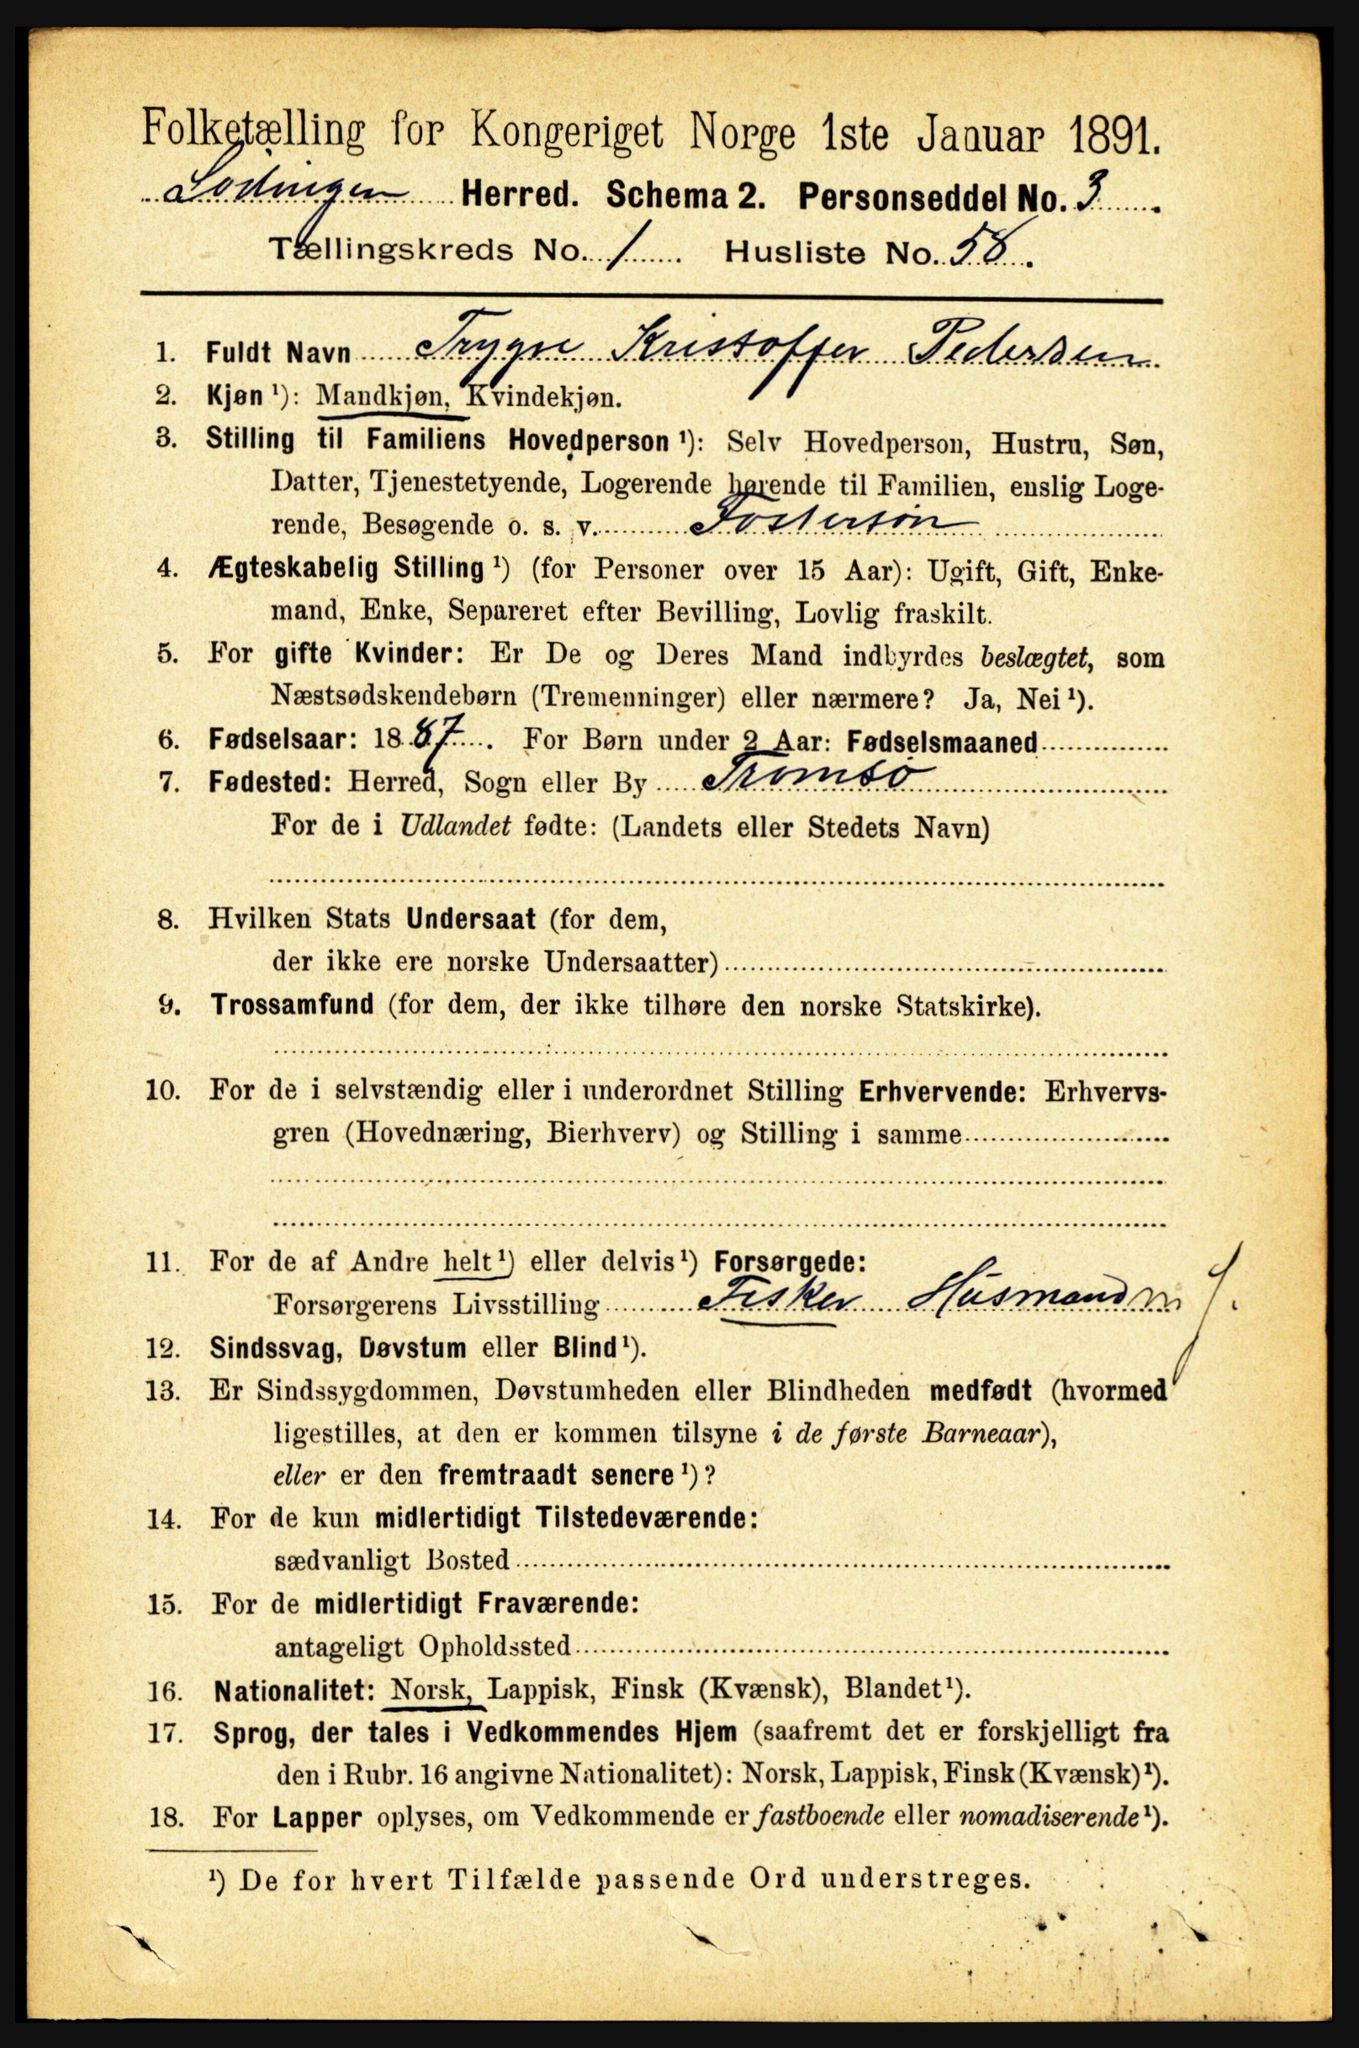 Folketælling for Kongeriget Norge 1ste Januar 1891.
Lödingen Herred. Schema 2. Personseddel No. 3.
Tællingskreds No. 1 Husliste No. 58.
1. Fuldt Navn Trygve Kristoffer Pedersen
2. Kjøn ¹): Mandkjøn, Kvindekjøn.
3. Stilling til Familiens Hovedperson ¹): Selv Hovedperson, Hustru, Søn,
Datter, Tjenestetyende, Logerende hørende til Familien, enslig Loge-
rende, Besøgende o. s. v. Fostersön
4. Ægteskabelig Stilling ¹) (for Personer over 15 Aar): Ugift, Gift, Enke-
mand, Enke, Separeret efter Bevilling, Lovlig fraskilt.
5. For gifte Kvinder: Er De og Deres Mand indbyrdes beslægtet, som
Næstsødskendebørn (Tremenninger) eller nærmere? Ja, Nei ¹).
6. Fødselsaar: 1887. For Børn under 2 Aar: Fødselsmaaned
7. Fødested: Herred, Sogn eller By Tromsö
For de i Udlandet fødte: (Landets eller Stedets Navn)
8. Hvilken Stats Undersaat (for dem,
der ikke ere norske Undersaatter)
9. Trossamfund (for dem, der ikke tilhøre den norske Statskirke).
10. For de i selvstændig eller i underordnet Stilling Erhvervende: Erhvervs-
gren (Hovednæring, Bierhverv) og Stilling i samme
11. For de af Andre helt ¹) eller delvis ¹) Forsørgede:
Forsørgerens Livsstilling Fisker Husmand m J.
12. Sindssvag, Døvstum eller Blind ¹).
13. Er Sindssygdommen, Døvstumheden eller Blindheden medfødt (hvormed
ligestilles, at den er kommen tilsyne i de første Barneaar),
eller er den fremtraadt senere ¹)?
14. For de kun midlertidigt Tilstedeværende:
sædvanligt Bosted
15. For de midlertidigt Fraværende:
antageligt Opholdssted
16. Nationalitet: Norsk, Lappisk, Finsk (Kvænsk), Blandet ¹).
17. Sprog, der tales i Vedkommendes Hjem (saafremt det er forskjelligt fra
den i Rubr. 16 angivne Nationalitet): Norsk, Lappisk, Finsk (Kvænsk) ¹).
18. For Lapper oplyses, om Vedkommende er fastboende eller nomadiserende ¹).
¹) De for hvert Tilfælde passende Ord understreges.